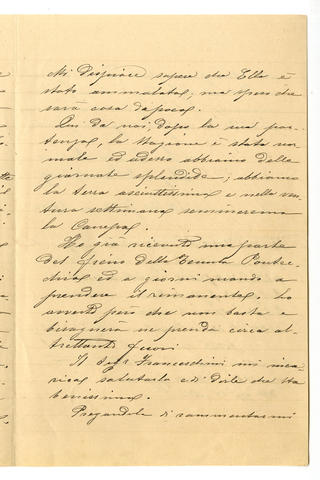 Mi dispiace sapere che Ella è
stato ammalata; ma spero che
sarà cosa da poca.
Qui da noi, dopo la sua par-
tenza, la stagione è stata nor-
male ed adesso abbiamo delle
giornate splendide; abbiamo
la terra asciuttissima e nella ven-
tura settimana semineremo
la Canepa.
Ho già ricevuto una parte
del fieno della Tenuta Pontec-
chio ed a giorni mando a
prendere il rimanente. Lo
avverto però che non basta e
bisognerà ne prenda circa al-
trettanto fuori.
Il Sigr Franceschini mi inca-
rica salutarla e di dirle che sta
benissimo.
Pregandola di rammentarmi